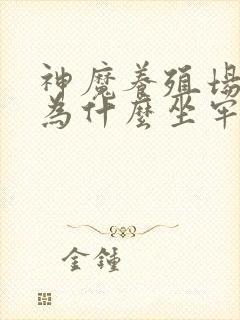 神魔養殖場
為什麼坐牢
金鍾